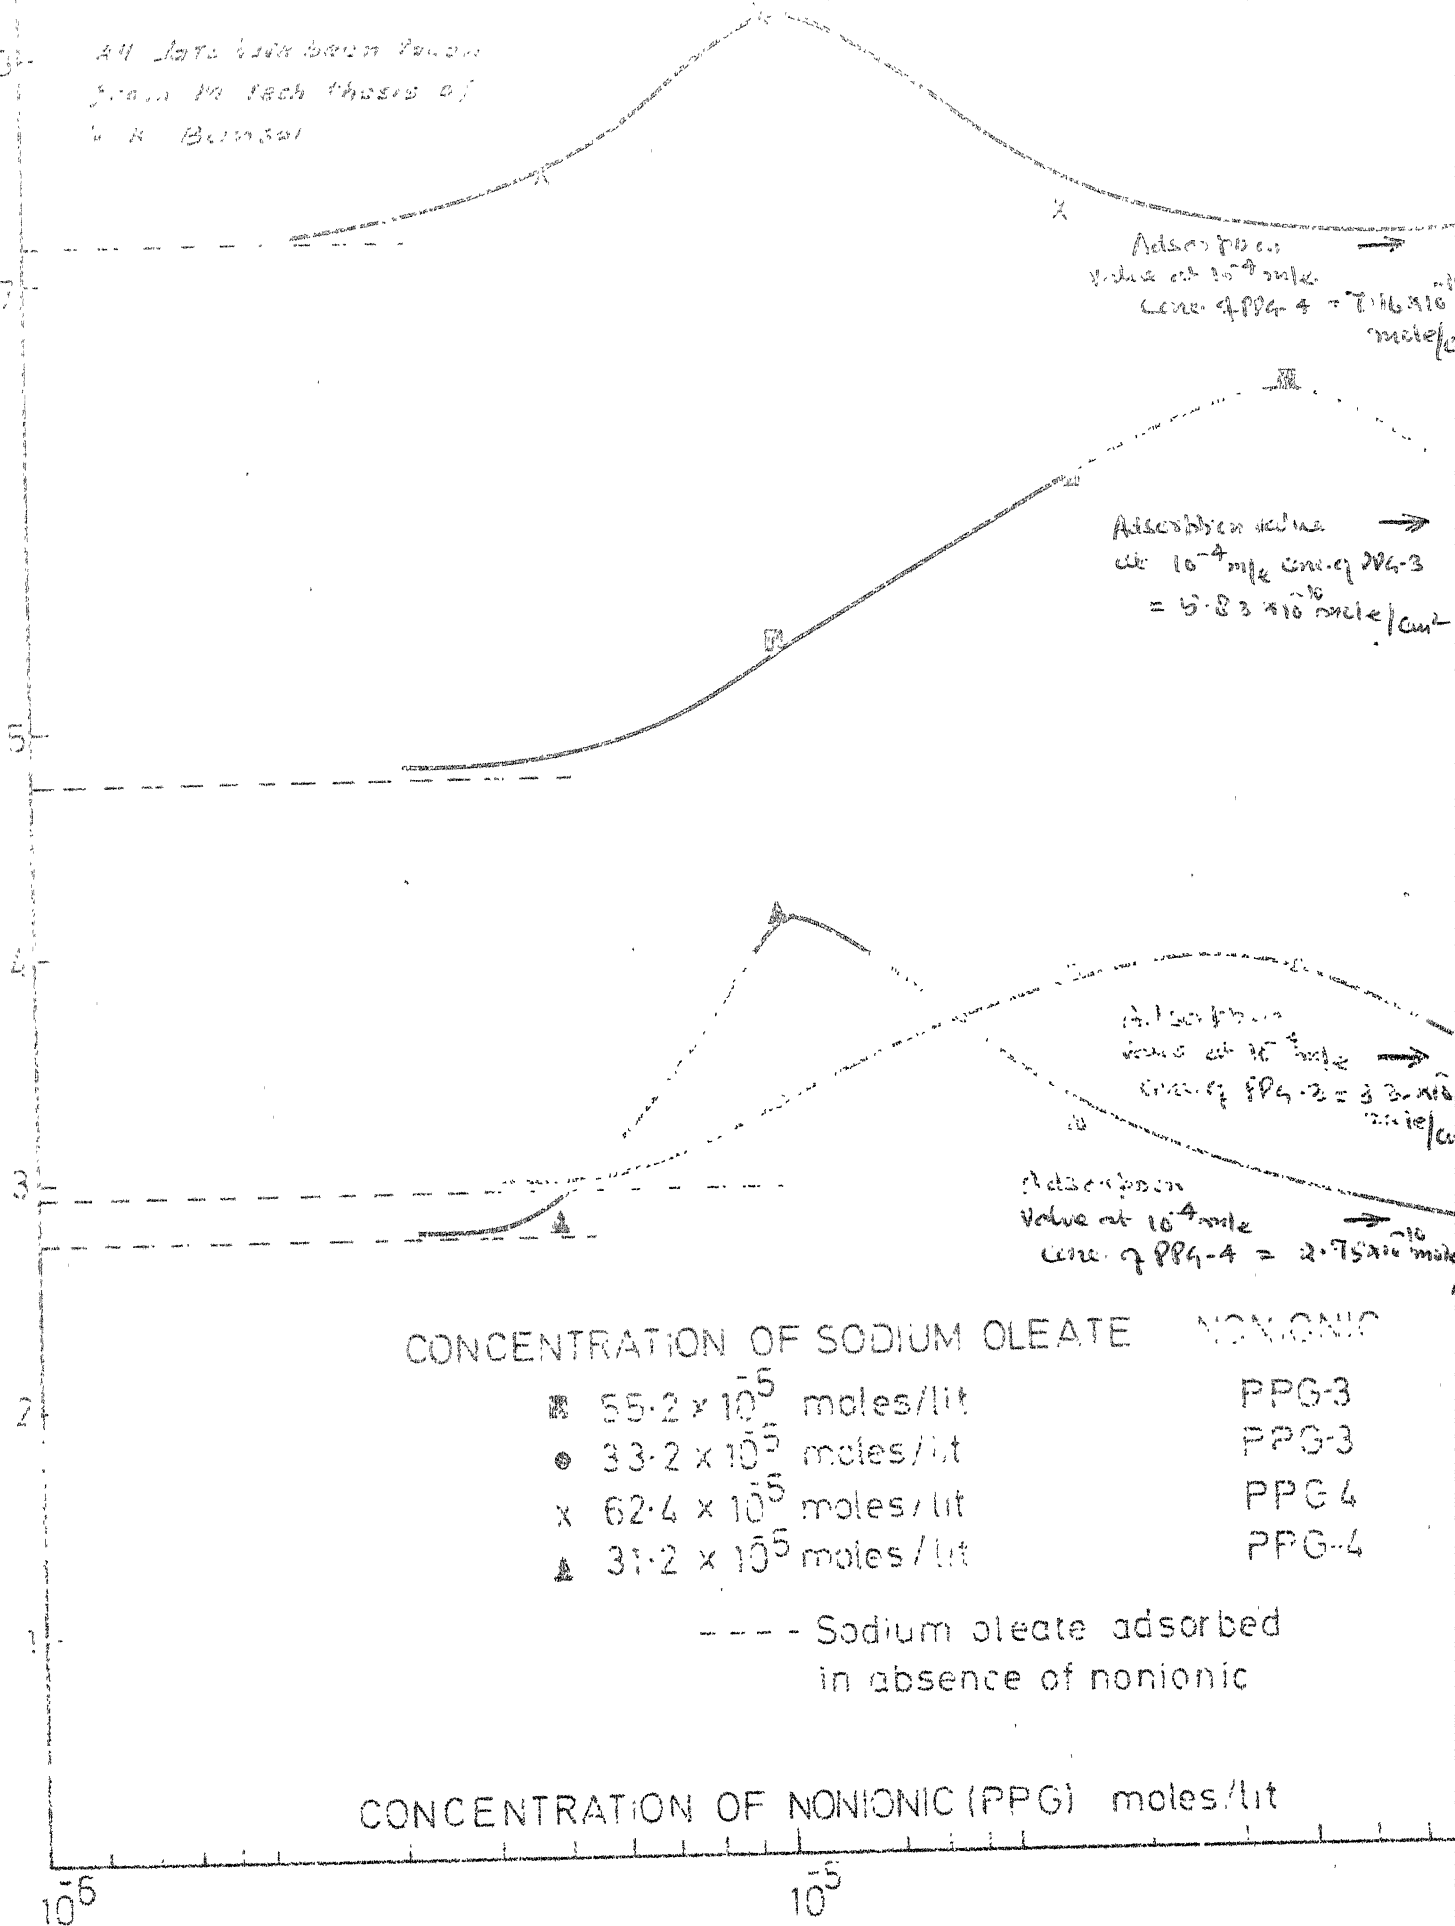 All data have been taken
from M Tech thesis of
K Bansal
7
Adsorption →
value at 10⁻⁴ m/l
conc. of PPG-4 = 7.16 x 10
mole/c
Adsorption value →
at 10⁻⁴ m/l conc. of PPG-3
= 5.83 x 10⁻¹⁰ mole/cm²
5
4
Adsorption
value at 10 m/l →
conc. of PPG-3 =
mole/c
3
Adsorption
Value at 10⁻⁴ m/l →
conc. of PPG-4 = 2.75 x 10⁻¹⁰ mole
CONCENTRATION OF SODIUM OLEATE NONIONIC
55·2 x 10⁻⁵ moles/lit PPG-3
● 33·2 x 10⁻⁵ moles/lit PPG-3
x 62·4 x 10⁻⁵ moles/lit PPG 4
▲ 31·2 x 10⁻⁵ moles/lit PPG-4
2
---- Sodium oleate adsorbed
in absence of nonionic
1
CONCENTRATION OF NONIONIC (PPG) moles/lit
10⁻⁶ 10⁻⁵